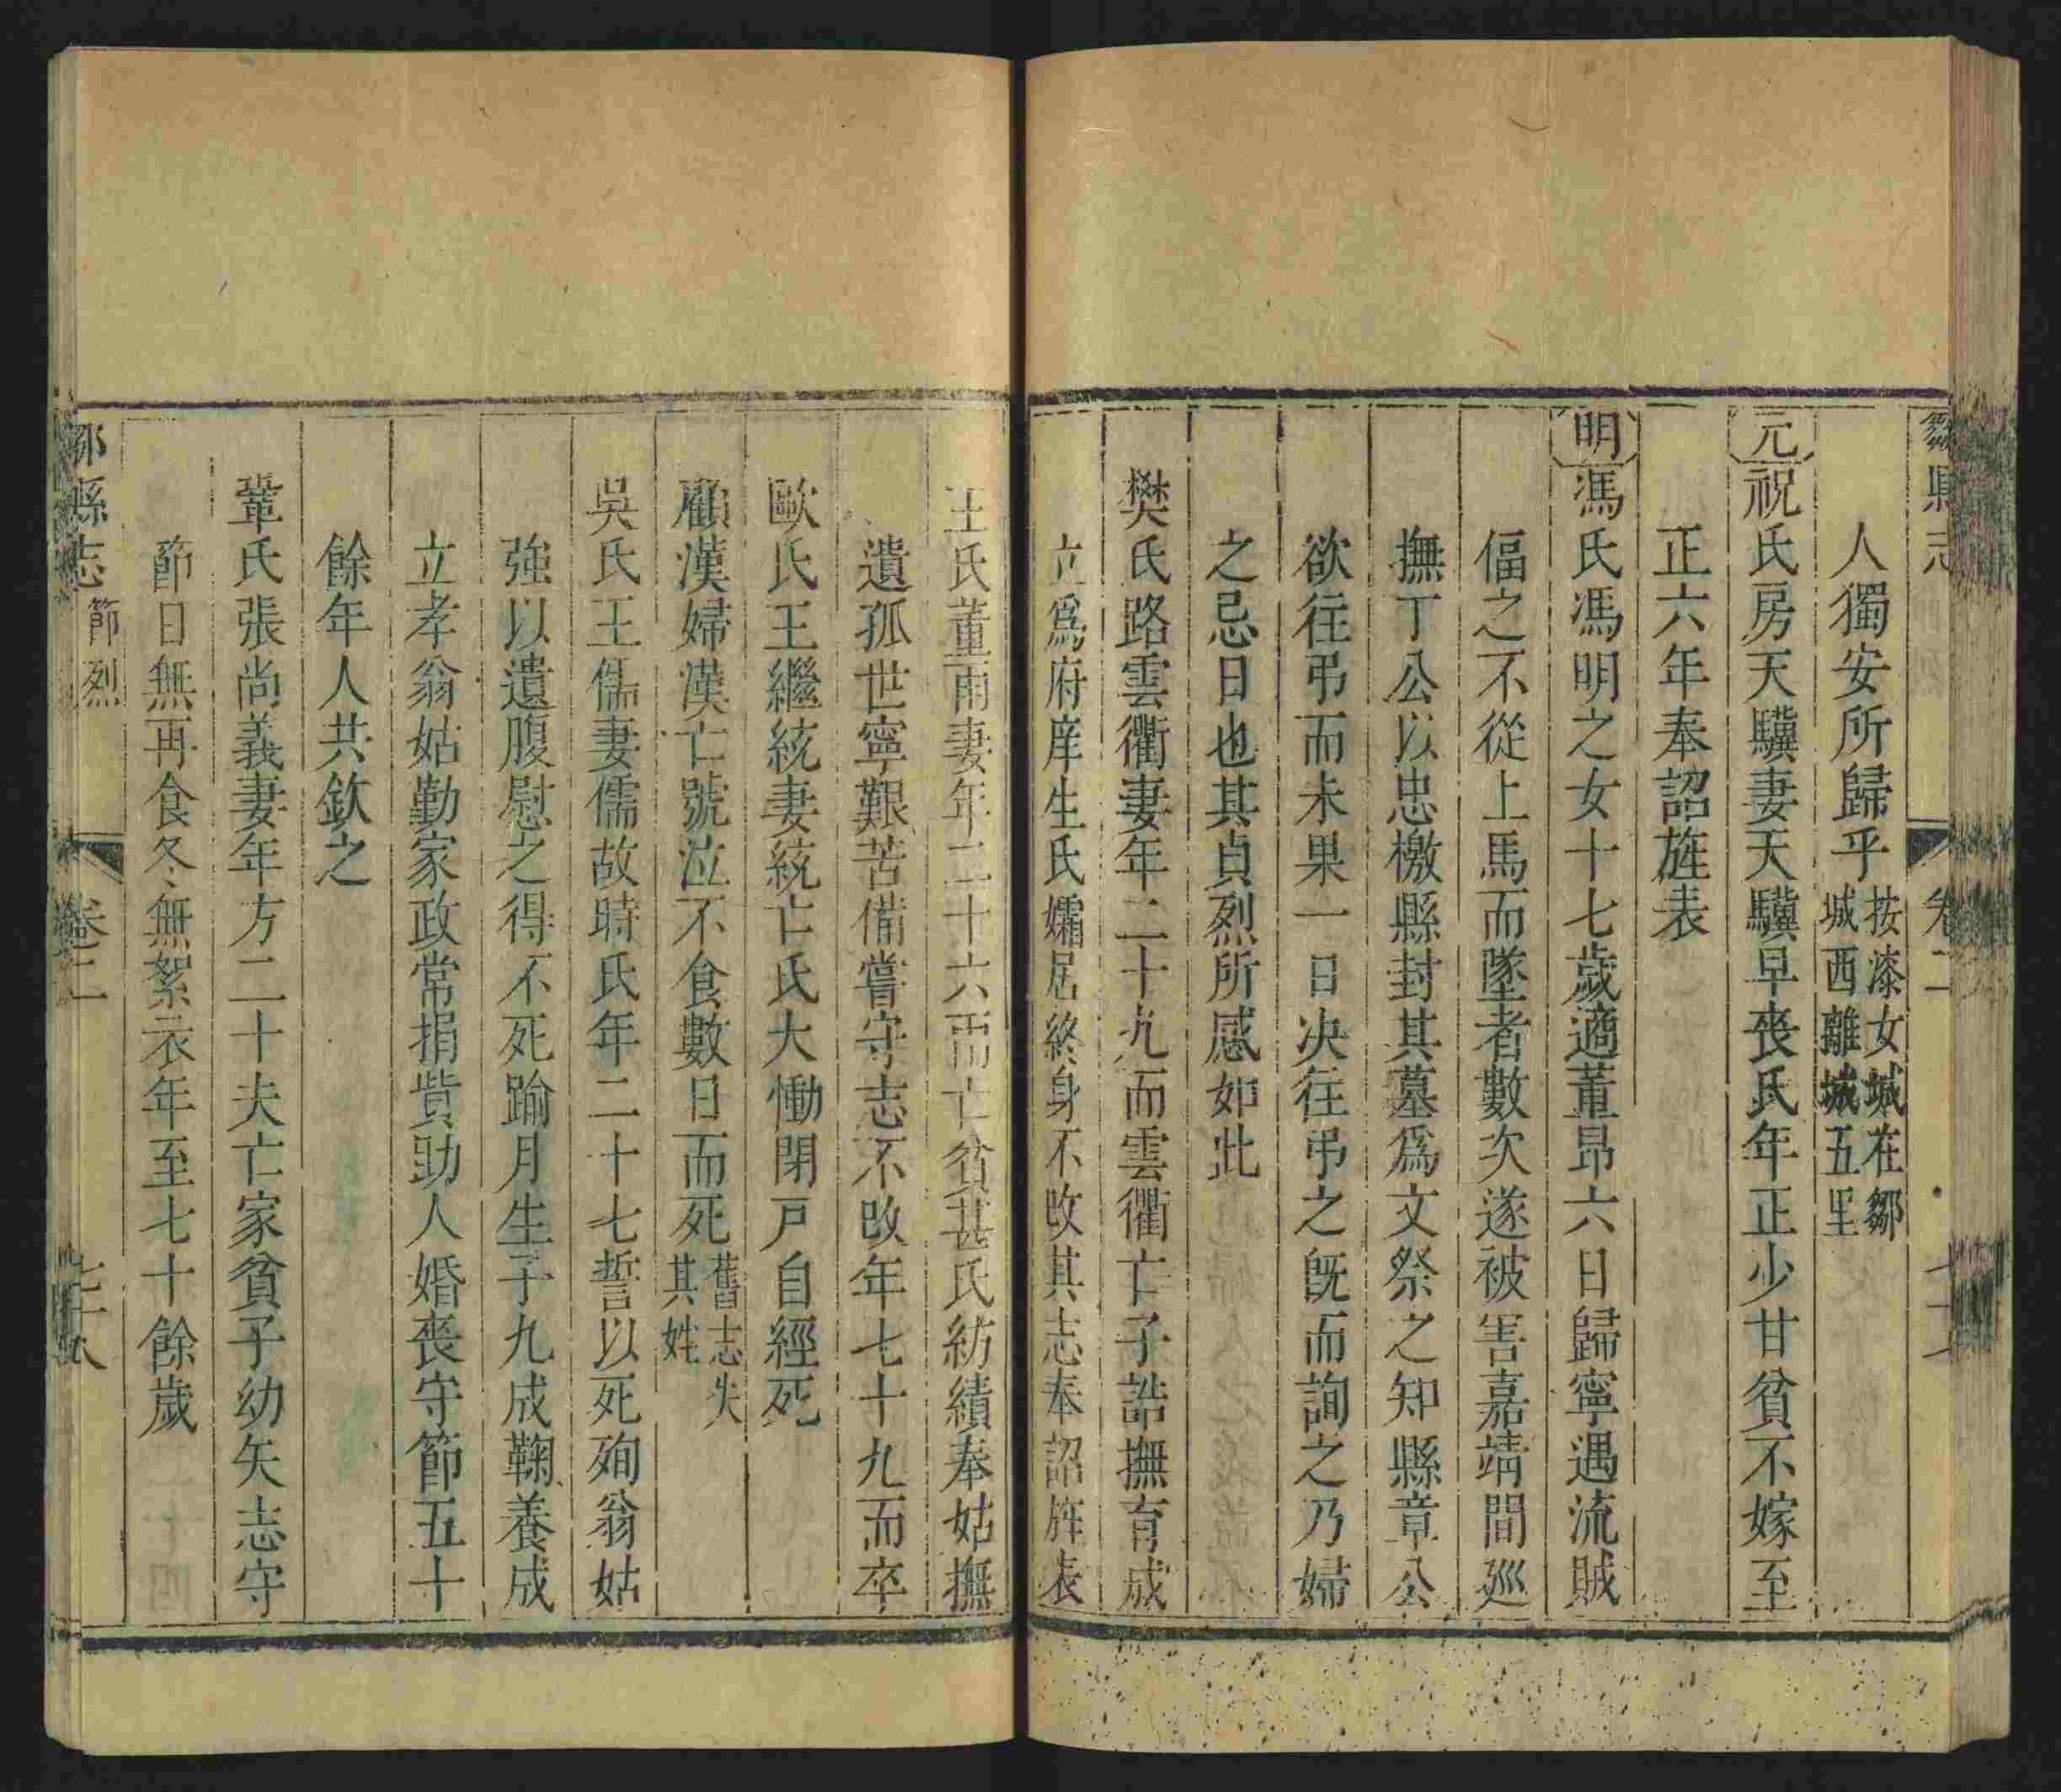 鄒縣志
卷二
人獨安所歸乎按漆女城在鄒
城西離城五里
元祝氏房天驥妻天驥早喪氏年正少甘貧不嫁至
正六年奉詔旌表
明馮氏馮明之女十七歲適董昂六日歸寧遇流賊
偪之不從上馬而墜者數次遂被害嘉靖間廵
撫丁公以忠檄縣封其墓爲文祭之知縣章公
欲往弔而未果一日决往弔之旣而詢之乃婦
之忌日也其貞烈所感如此
樊氏路雲衢妻年二十九而雲衢亡子誥撫育成
立爲府庠生氏孀居終身不改其志奉詔旌表
王氏董雨妻年二十六雨亡貧甚氏紡績奉姑撫
遺孤世寧艱苦備嘗守志不改年七十九而卒
歐氏王繼統妻統亡氏大慟閉戸自經死
顧漢婦漢亡號泣不食數日而死舊志失
其姓
吳氏王儒妻儒故時氏年二十七誓以死殉翁姑
強以遺腹慰之得不死踰月生子九成鞠養成
立孝翁姑勤家政常捐貲助人婚喪守節五十
餘年人共欽之
鞏氏張尚義妻年方二十夫亡家貧子幼矢志守
節日無再食冬無絮衣年至七十餘歲
鄒縣志 節烈 卷二 七十八